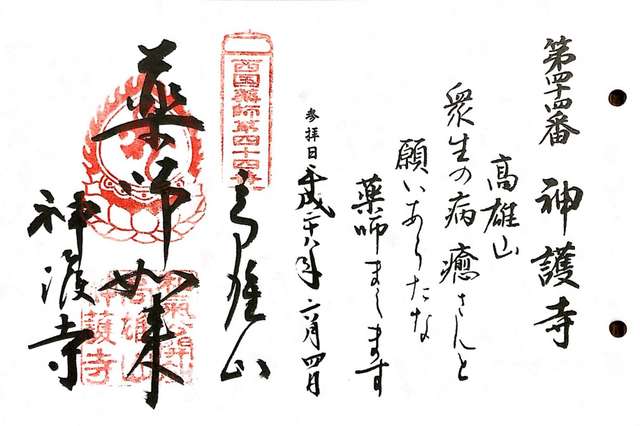 第四十四番 神護寺
高雄山
衆生の病癒さんと
願いあらたな
薬師まします
参拝日 平成二十八年 六月四月
西国薬師第四十四番
高雄山
薬師如来
神護寺